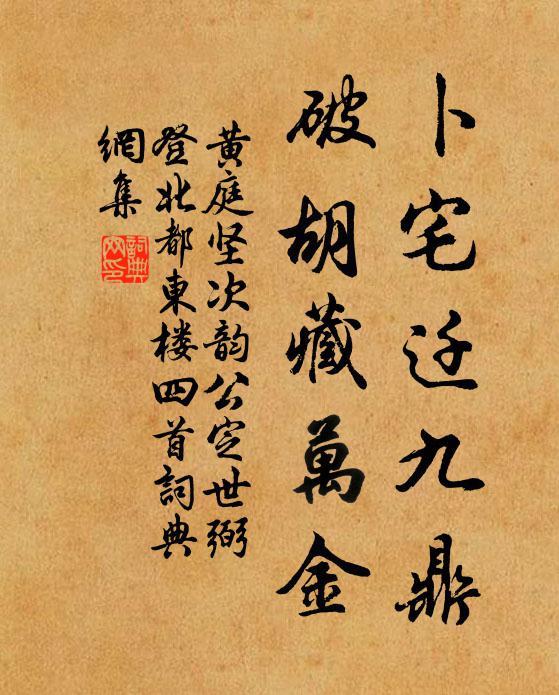 卜宅迁九鼎
破胡藏萬金
黄庭坚次韵公定世弼
登北都東楼四首詞典
網集
詞典網印